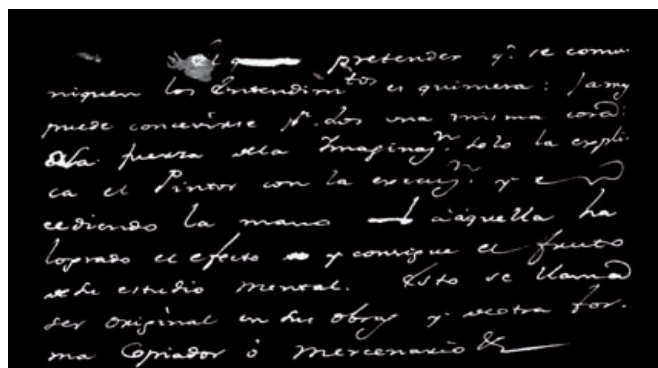 el q pretender q.e se comu-
niquen los Entendim.tos es quimera: jamas
puede concevirse p.r dos una misma cosa:
la fuerza dela Imaginaz.n solo la expli-
ca el Pintor con la execuz.n y
cediendo la mano a aquella ha
logrado el efecto y consigue el fruto
de su estudio mental. Esto se llama
ser original en sus obras y de otra for-
ma Copiador ó Mercenario &